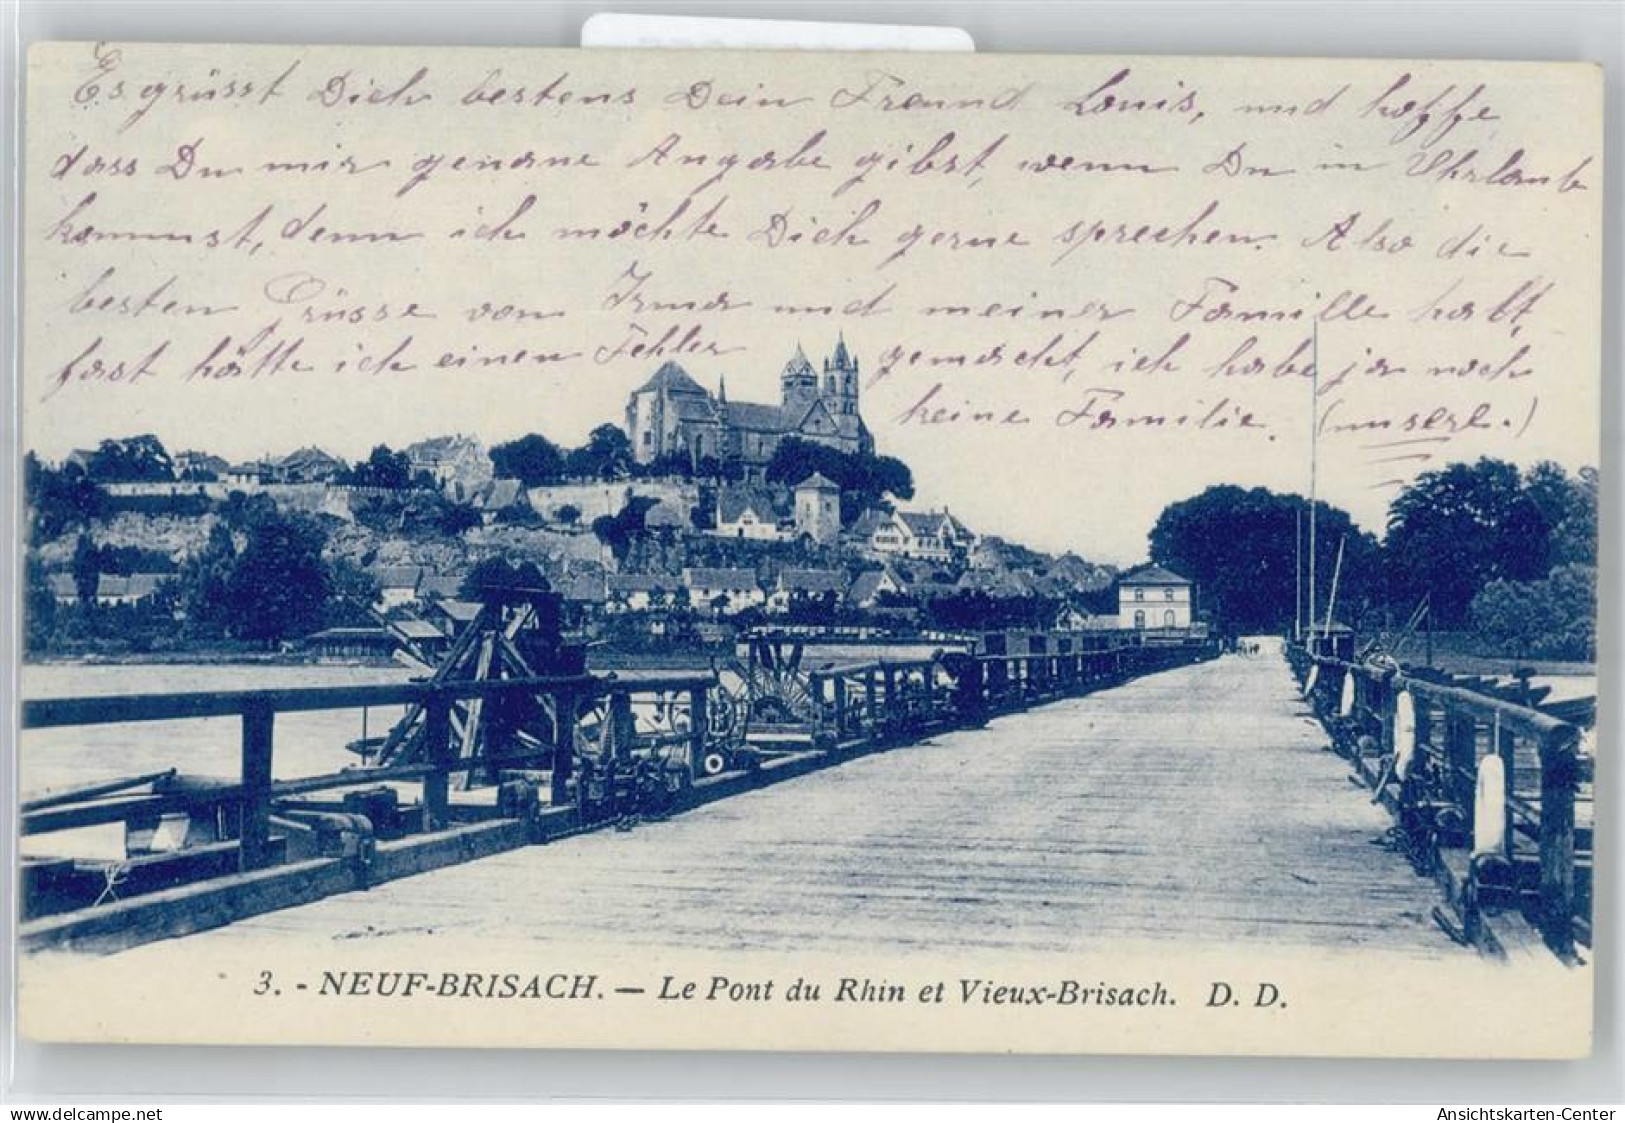 Es grüsst Dich bestens Dein Freund Louis, und hoffe,
dass Du mir genaue Angabe gibst, wenn Du in Uhrlaub
kommst, denn ich möchte Dich gerne sprechen. Also die
besten Grüsse von Irma und meiner Famille halt,
fast hätte ich einen Fehler gemacht, ich habe ja noch
keine Familie. (unsere.)
3. - NEUF-BRISACH. — Le Pont du Rhin et Vieux-Brisach. D. D.
www.delcampe.net
Ansichtskarten-Center